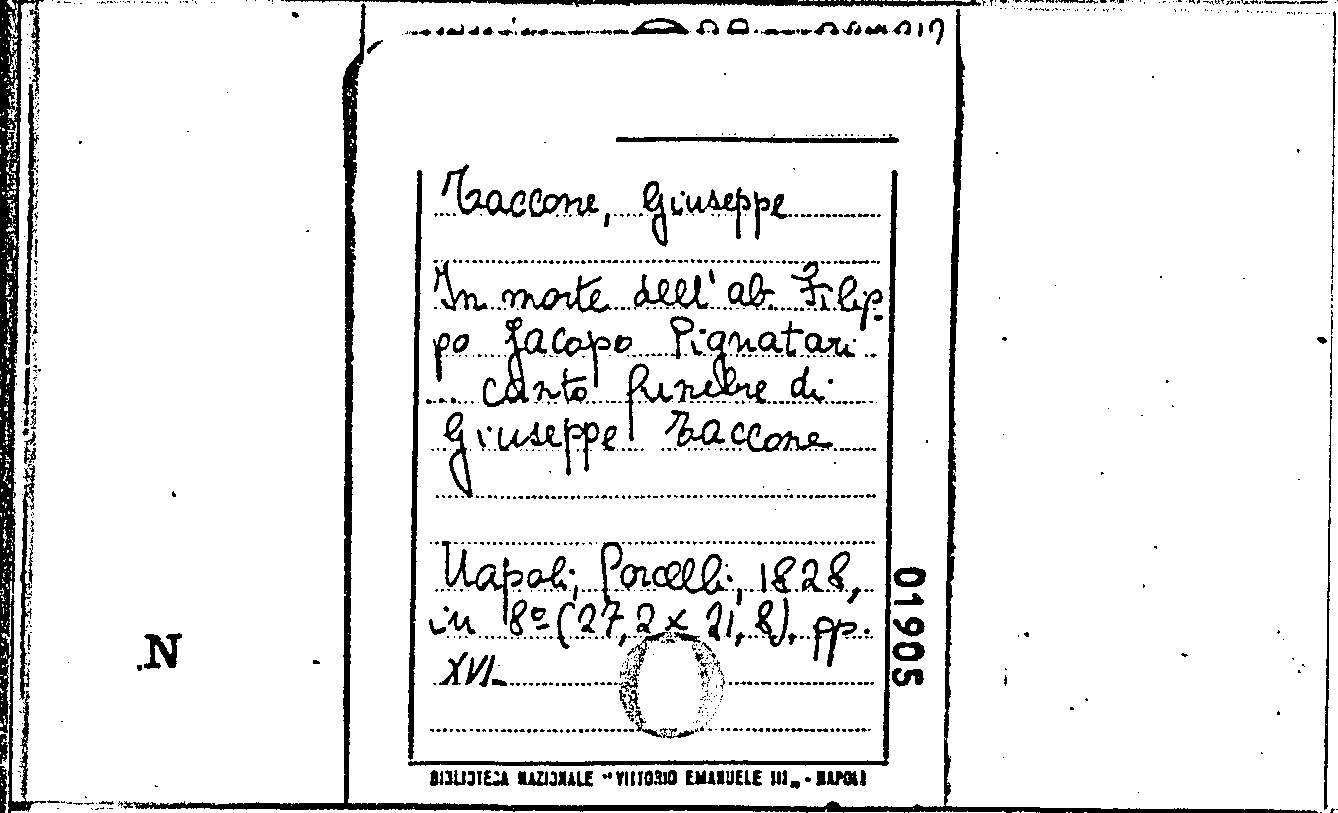 Taccone, Giuseppe
In morte dell' ab. Filip-
po Jacopo Pignatari
... canto funebre di
Giuseppe Taccone
Napoli, Porcelli, 1828,
in 8º (27,2 x 21,8), pp.
XVI
01905
N
BIBLIOTECA NAZIONALE "VITTORIO EMANUELE III" - NAPOLI